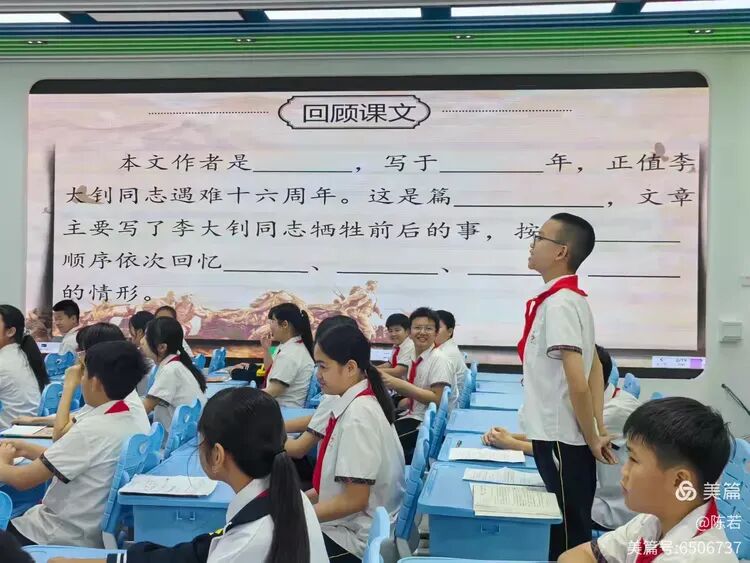 回顾课文
本文作者是________,写于________年,正值李
大钊同志遇难十六周年。这是篇____________,文章
主要写了李大钊同志牺牲前后的事,按________
顺序依次回忆________、________、________ ________
的情形。
美篇
美篇
@陈若
美篇号:6506737